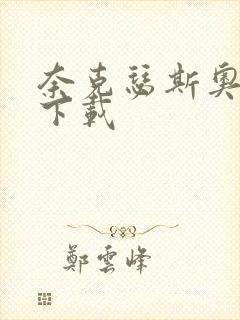 奈克瑟斯奥
下載
鄭雲峰